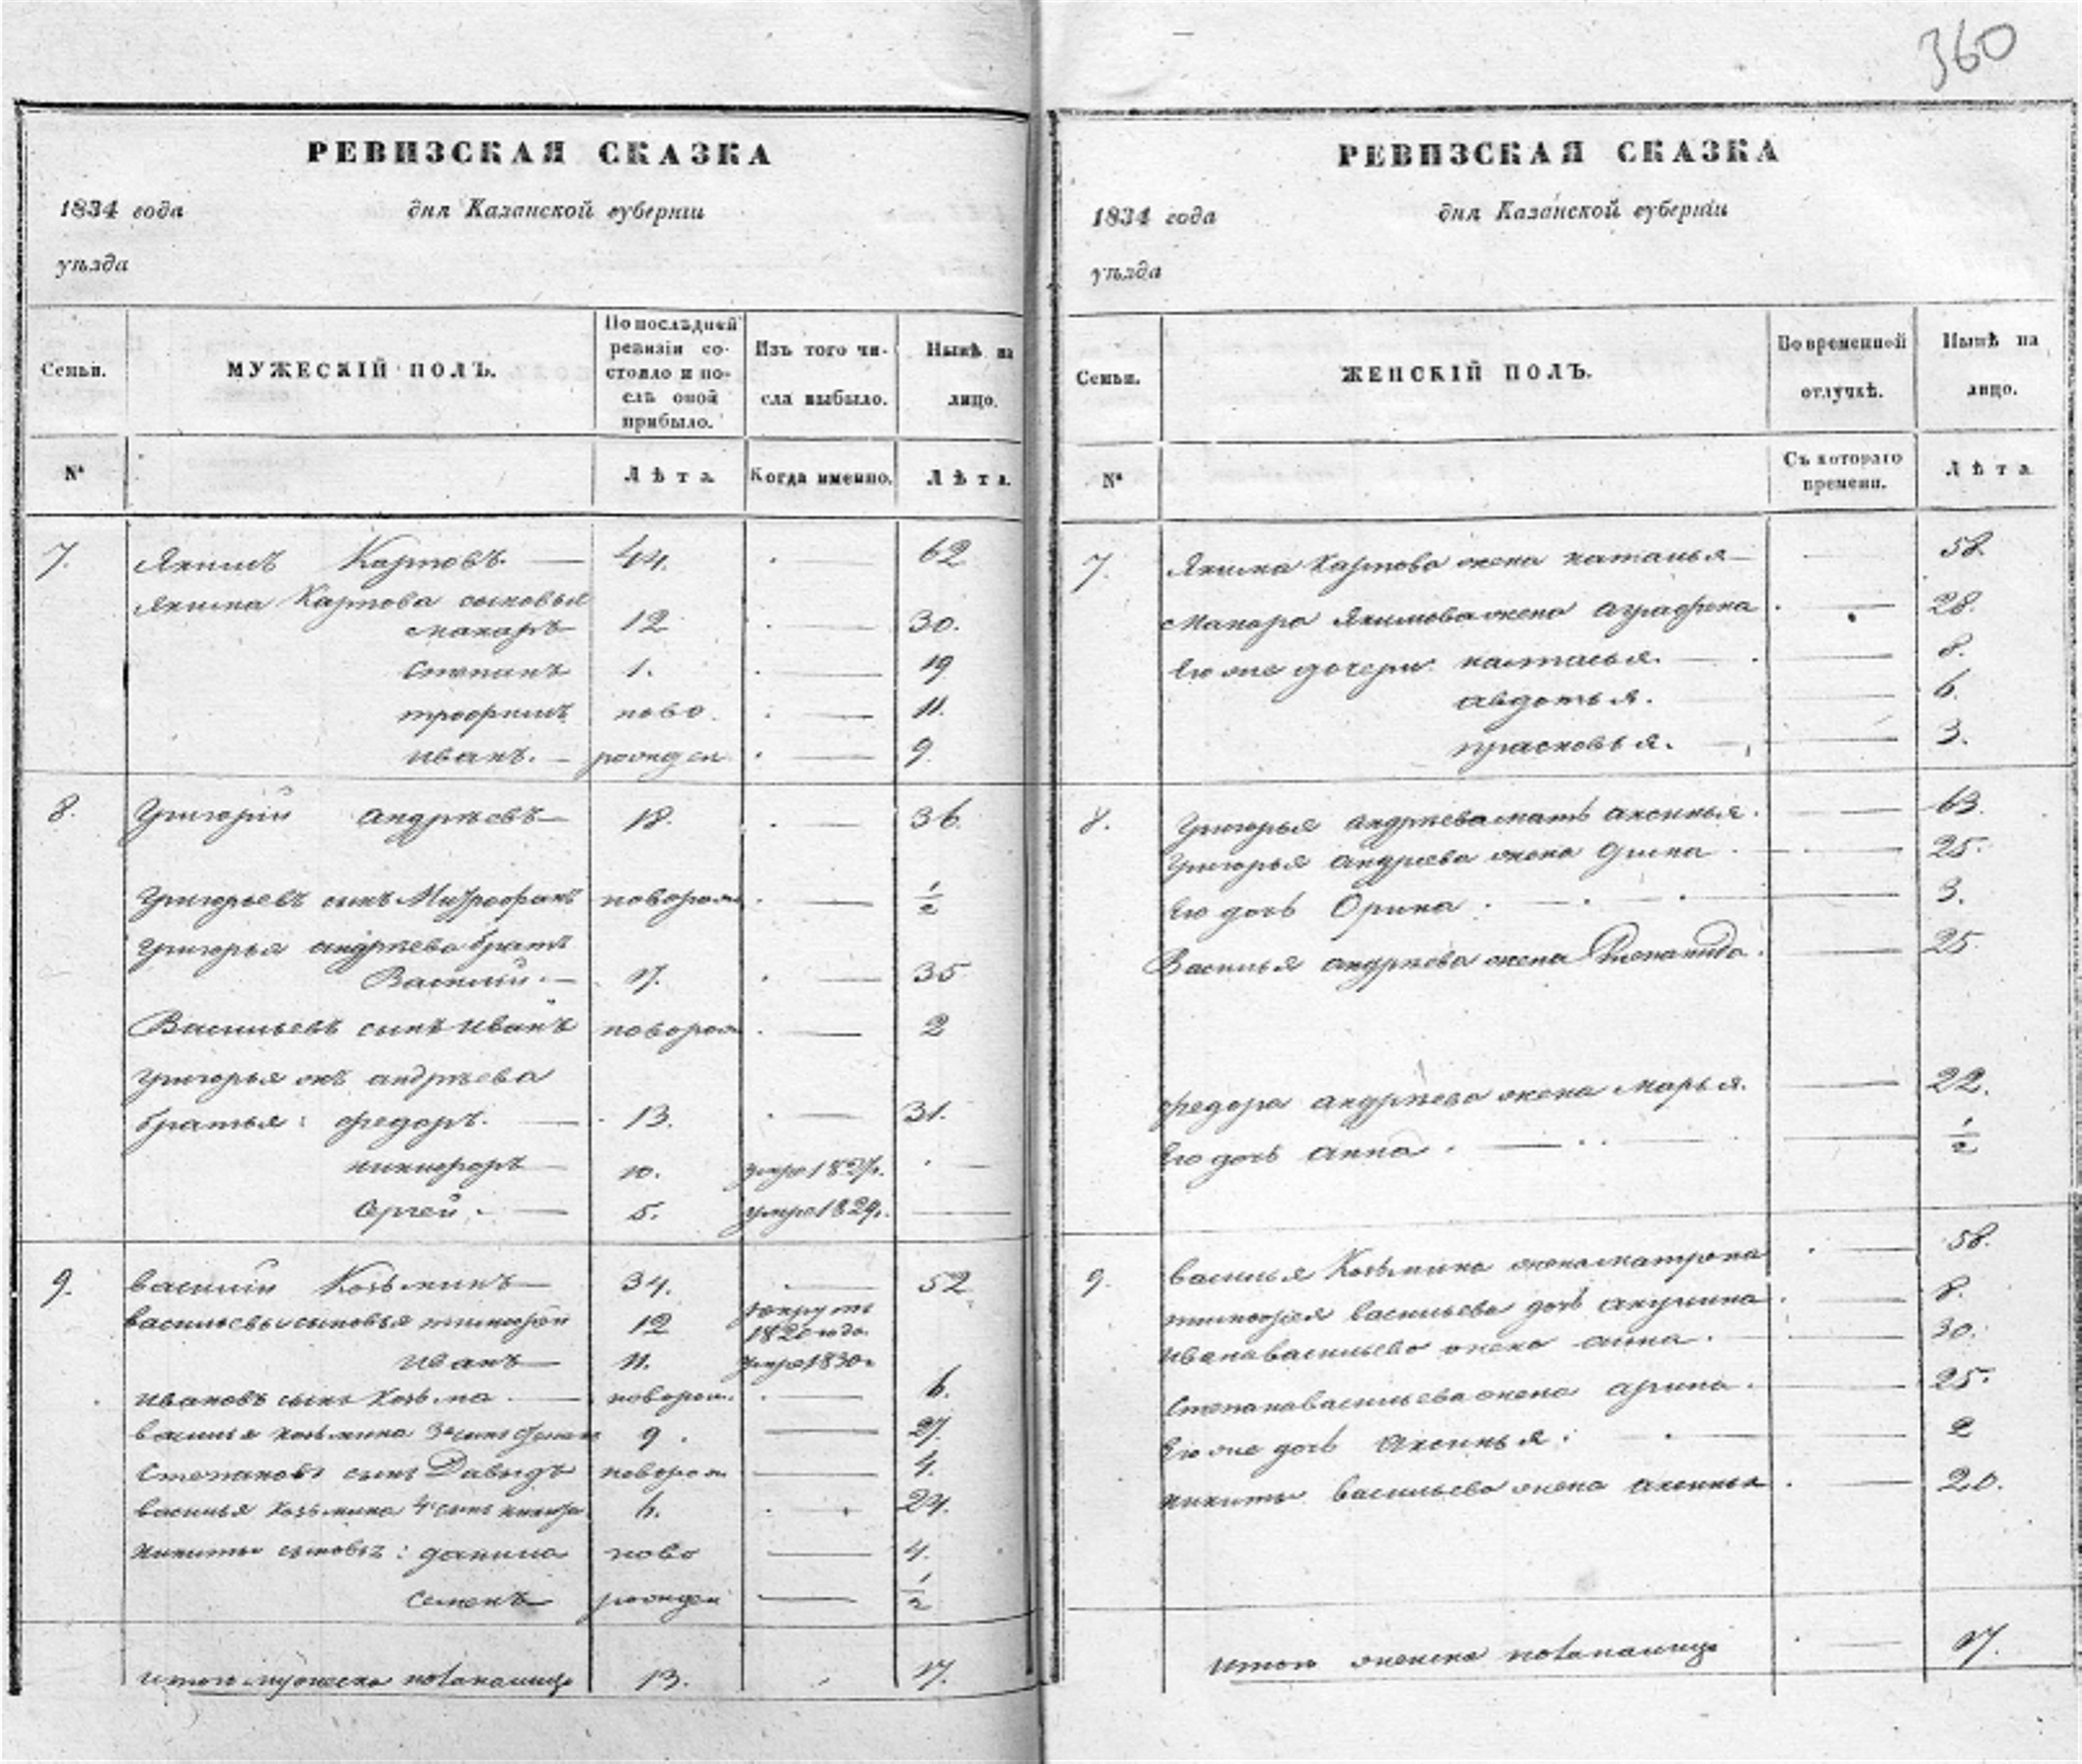 360
РЕВИЗСКАЯ СКАЗКА
1834 года дня Казанской губернии
уѣзда
Семьи. МУЖЕСКІЙ ПОЛЪ. По послѣдней ревизіи состояло и послѣ оной прибыло. Изъ того числа выбыло. Нынѣ на лицо.
№ Лѣта Когда именно. Лѣта.
7. Якимъ Карповъ. — 44. — 62
Якима Карпова сыновья
Макаръ 12 — 30.
Степанъ 1. — 19
трофимъ ново — 11.
Иванъ. — рожден — 9.
8. Григорій Андрѣевъ — 18. — 36.
Григорьевъ сынъ Митрофанъ новорож — 1/2
Григорья андрѣева братъ
Василій. — 17. — 35
Васильевъ сынъ Иванъ новорож — 2
Григорья андрѣева
братья: федоръ. — 13. — 31.
никифоръ 10. умре 1827. —
Сергей. — 5. умре 1829. —
9. василій Козьминъ — 34. — 52
васильевы сыновья тимофей 12 1820 года
Иванъ — 11. умре 1830
Ивановъ сынъ Козьма — новорож. — 6.
василья козьмина 3й сынъ степанъ 9. — 27.
Степановъ сынъ Давыдъ новорож — 4.
василья козьмина 4й сынъ никита 6. 24.
никиты сыновья: данила ново — 4.
Семенъ рожден — 1/2
итого мужеска пола налицо 13. 17.
РЕВИЗСКАЯ СКАЗКА
1834 года дня Казанской губерніи
уѣзда
Семьи. ЖЕНСКІЙ ПОЛЪ. Во временной отлучкѣ. Нынѣ на лицо.
№ Съ котораго времени. Лѣта
7. Якима Карпова жена наталья — 58.
Макара Якимова жена аграфена — 28.
Его же дочери настасья. — 8.
авдотья. — 6.
прасковья. — 3.
8. Григорья андрѣева мать аксинья. — 63.
Григорья андреева жена — 25.
Его дочь Орина. — 3.
Василья андрѣева жена — 25.
федора андрѣева жена Марья. — 22.
Его дочь анна. — 1/2
9. василья Козьмина жена матрена — 58.
тимофея васильева дочь акулина — 8.
ивана васильева жена анна. — 30.
Степана васильева жена арина. — 25.
Его же дочь Аксинья. — 2
никиты васильева жена аксинья — 20.
итого женска пола налицо — 17.